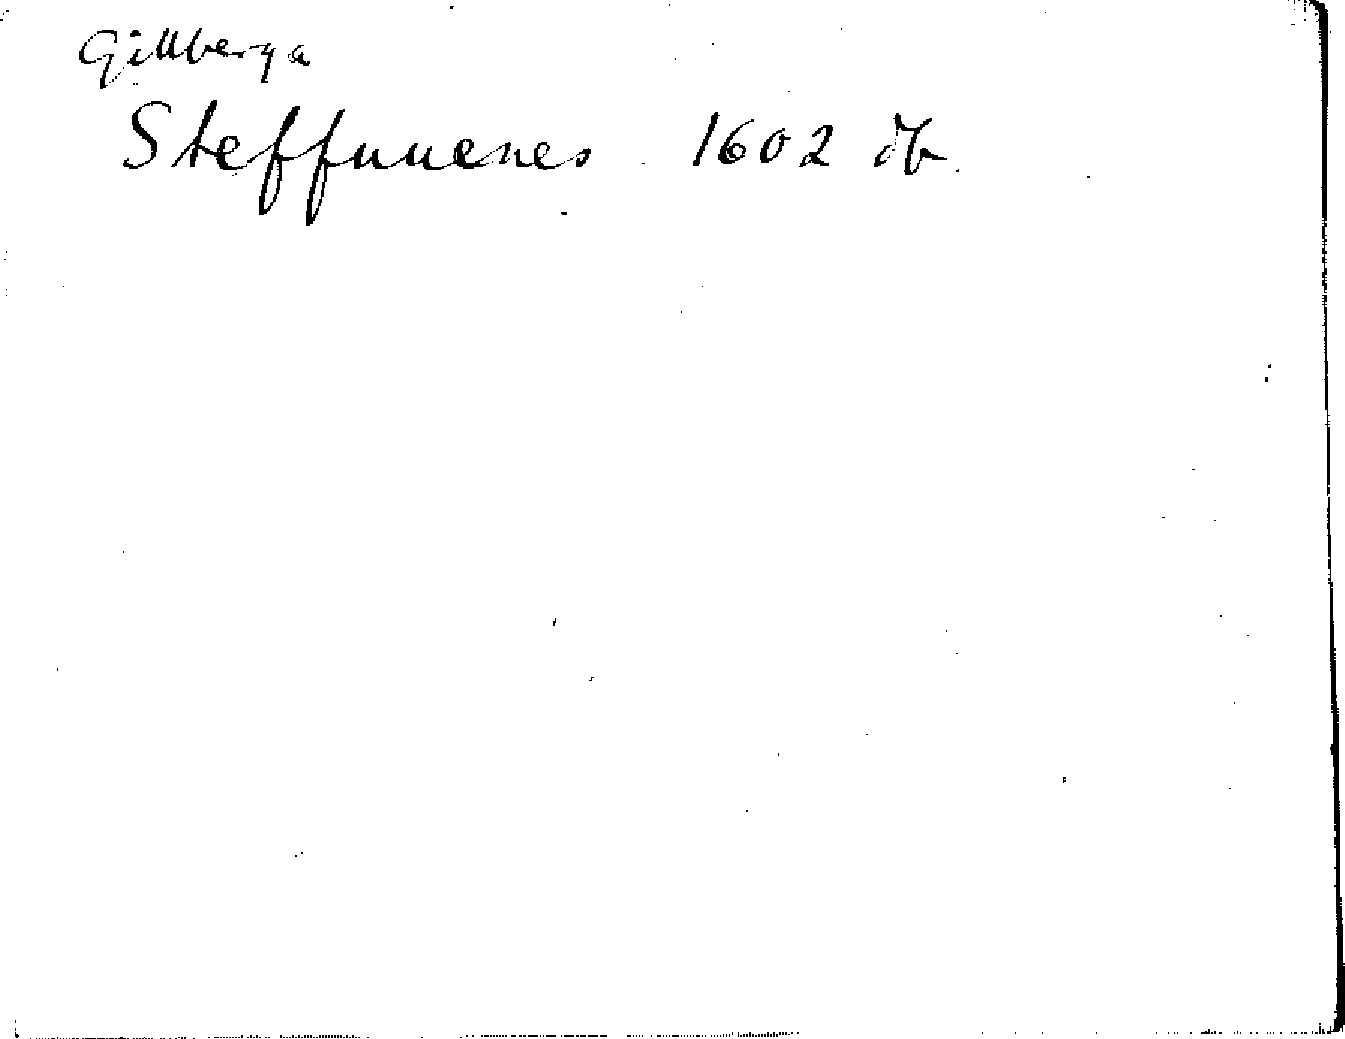 Gillberga
Steffnuenes 1602 Jb